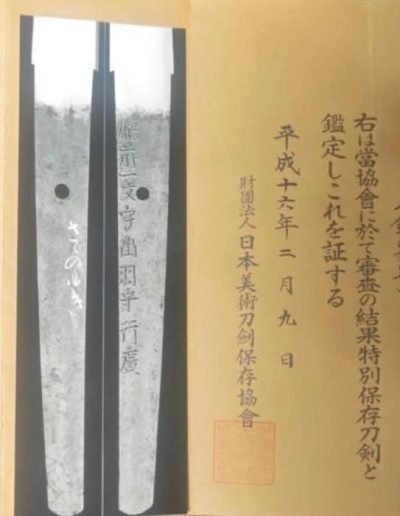 右は當協會に於て審査の結果特別保存刀剣と
鑑定しこれを証する
平成十六年二月九日
財團法人日本美術刀剣保存協會
肥前一文字出羽守行廣